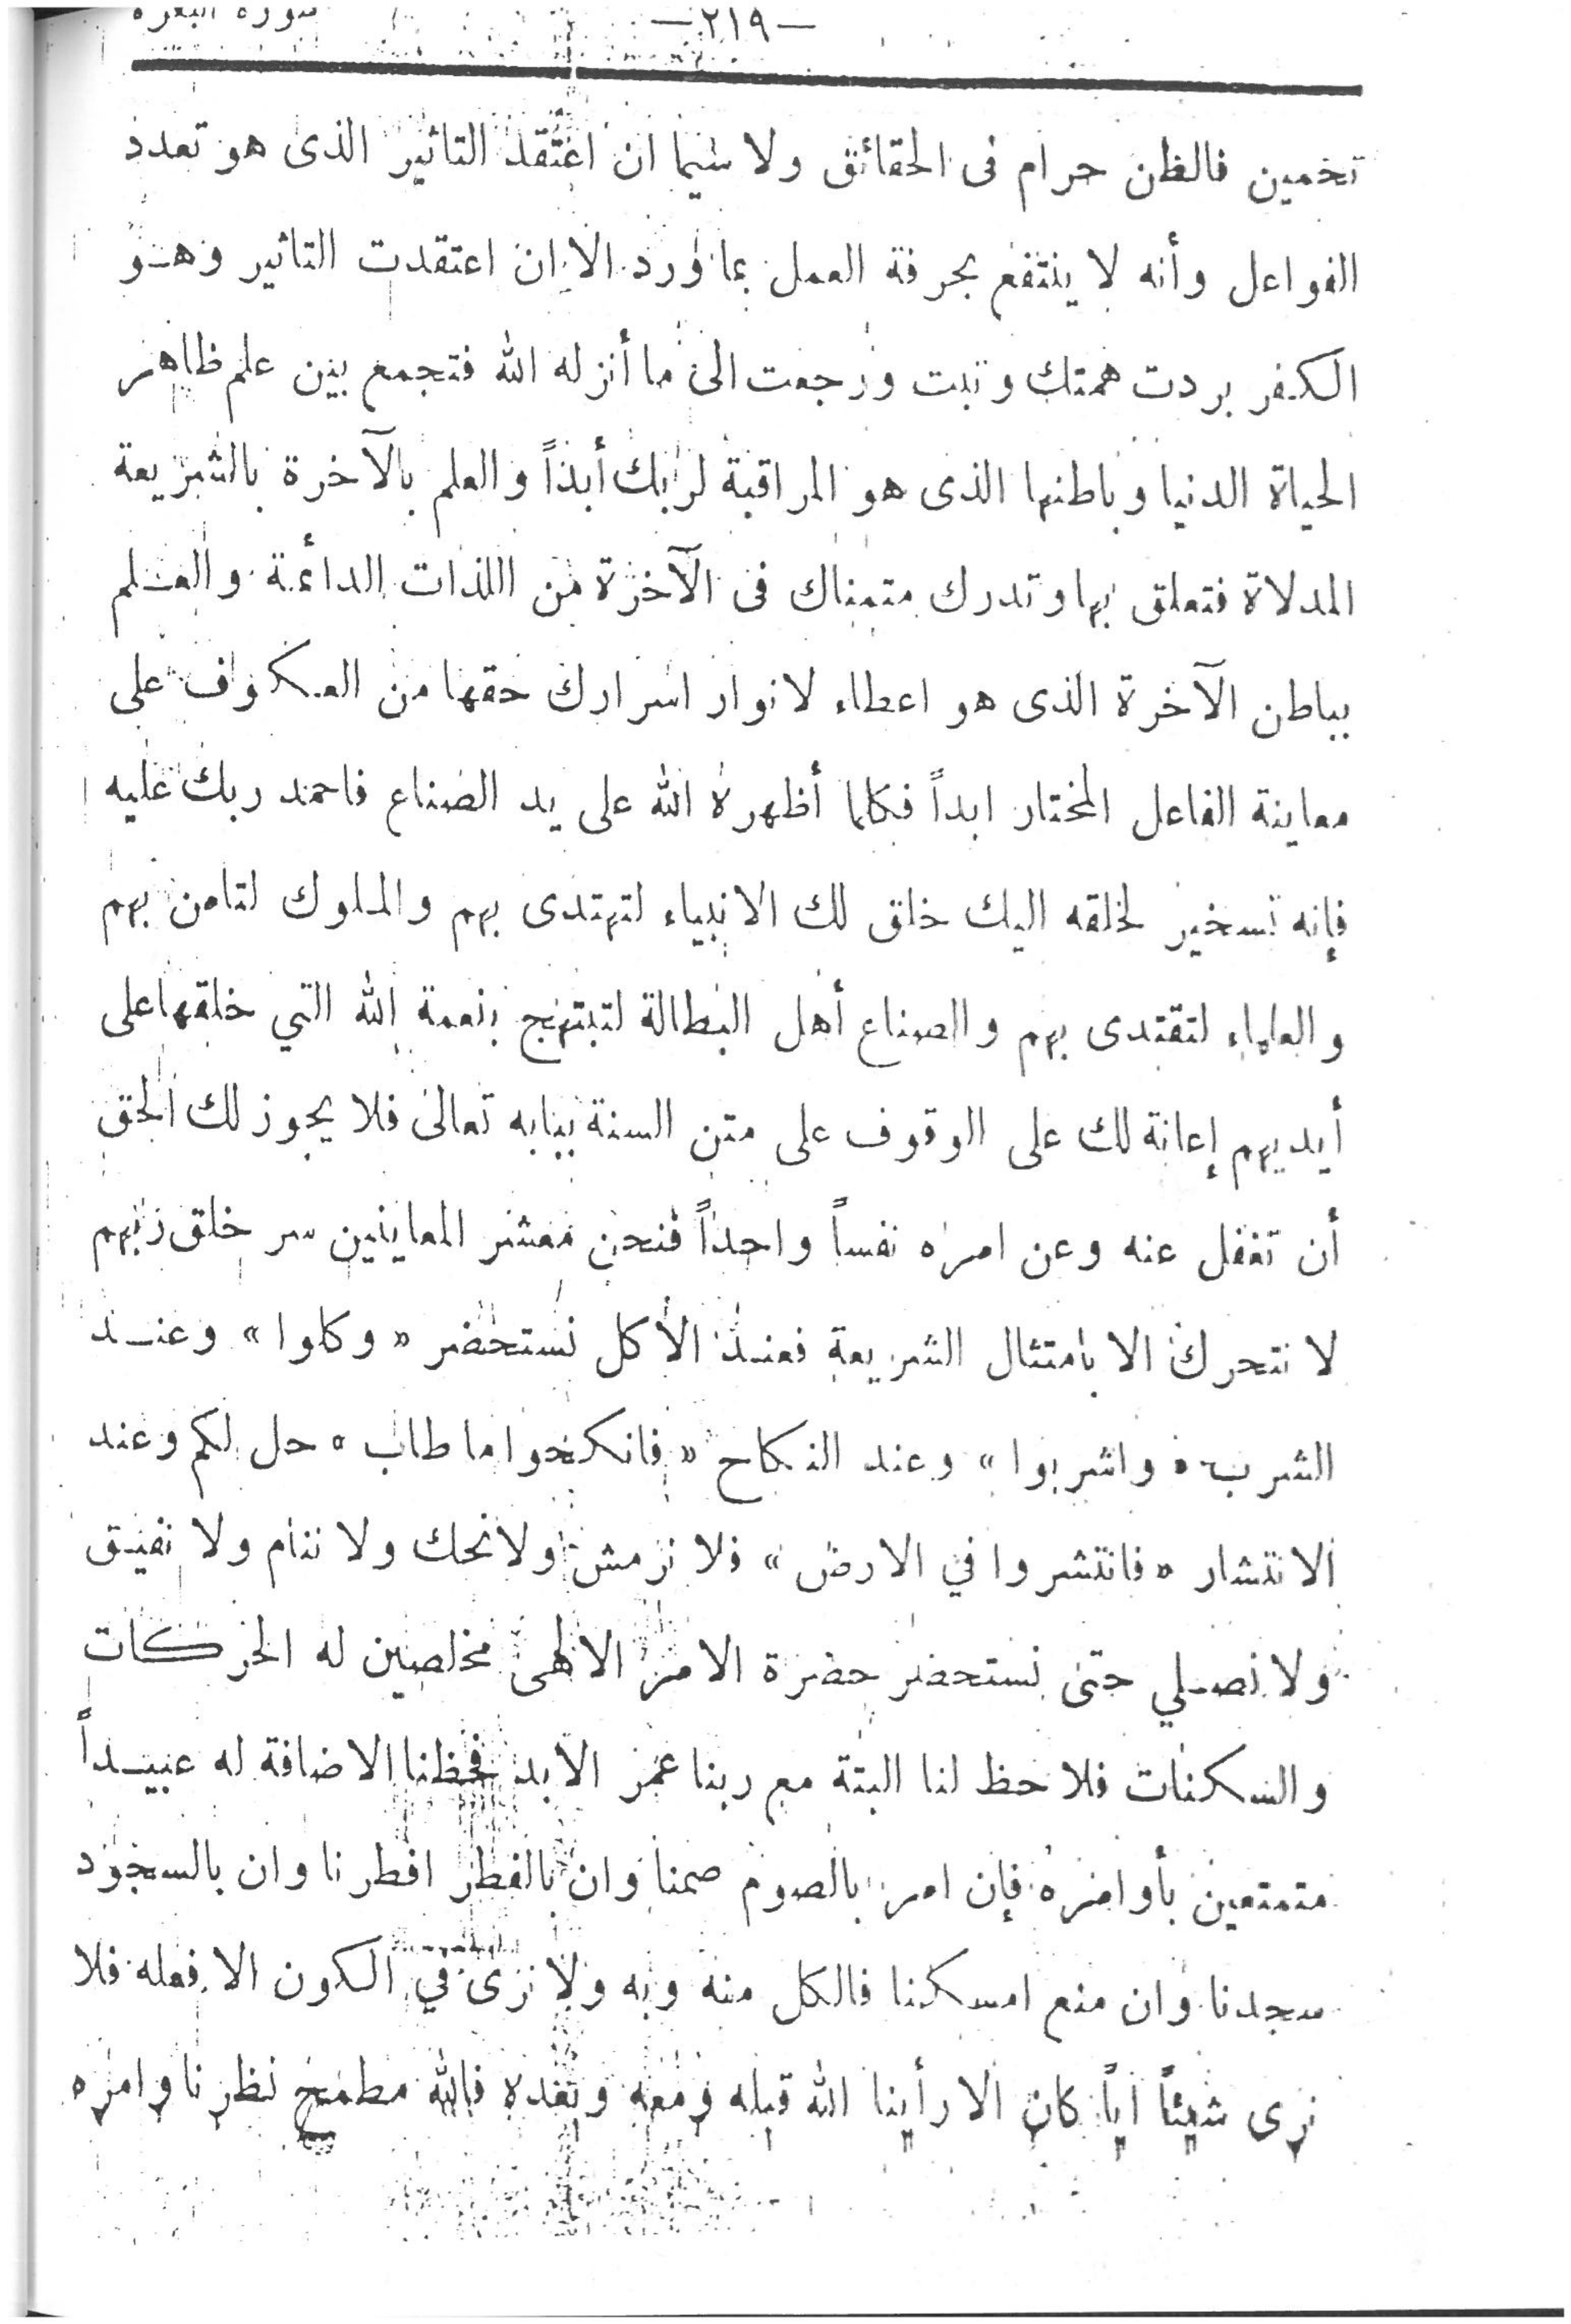 سورة البقرة —٢١٩—
تخمين فالظن حرام فى الحقائق ولا سيما ان اعتقد التاثير الذى هو تعدد
الفواعل وأنه لا ينتفع بحرفة العمل بما ورد الا ان اعتقدت التاثير وهـو
الكفر بردت همتك وتبت ورجعت الى ما أنزله الله فتجمع بين علم ظاهر
الحياة الدنيا وباطنها الذى هو المراقبة لربك أبداً والعلم بالآخرة بالشريعة
المدلاة فتعلق بها وتدرك متمناك فى الآخرة من اللذات الدائمة والعـلم
بباطن الآخرة الذى هو اعطاء لانوار اسرارك حقها من العكوف على
معاينة الفاعل المختار ابداً فكلما أظهره الله على يد الصناع فاحمد ربك عليه
فإنه تسخير لخلقه اليك خلق لك الانبياء لتهتدى بهم والملوك لتامن بهم
والعلماء لتقتدى بهم والصناع أهل البطالة لتبتهج بنعمة الله التي خلقها على
أيديهم إعانة لك على الوقوف على متن السنة ببابه تعالى فلا يجوز لك الحق
أن تغفل عنه وعن امره نفساً واحداً فنحن معشر المعاينين سر خلق ربهم
لا نتحرك الا بامتثال الشريعة فعند الأكل نستحضر «وكلوا» وعنـد
الشرب «واشربوا» وعند النكاح «فانكحوا ما طاب» حل لكم وعند
الانتشار «فانتشروا في الارض» فلا نرمش ولا نحك ولا ننام ولا نفيـق
ولا نصـلي حتى نستحضر حضرة الامر الالهى مخلصين له الحركات
والسكنات فلا حظ لنا البتة مع ربنا عمر الأبد فحظنا الاضافة له عبيـداً
متمتعين بأوامره فإن امر بالصوم صمنا وان بالفطر افطرنا وان بالسجود
سجدنا وان منع امسكنا فالكل منه وبه ولا نرى في الكون الا فعله فلا
نرى شيئاً اياً كان الا رأينا الله قبله ومعه وبعده فالله مطمح نظرنا وامره